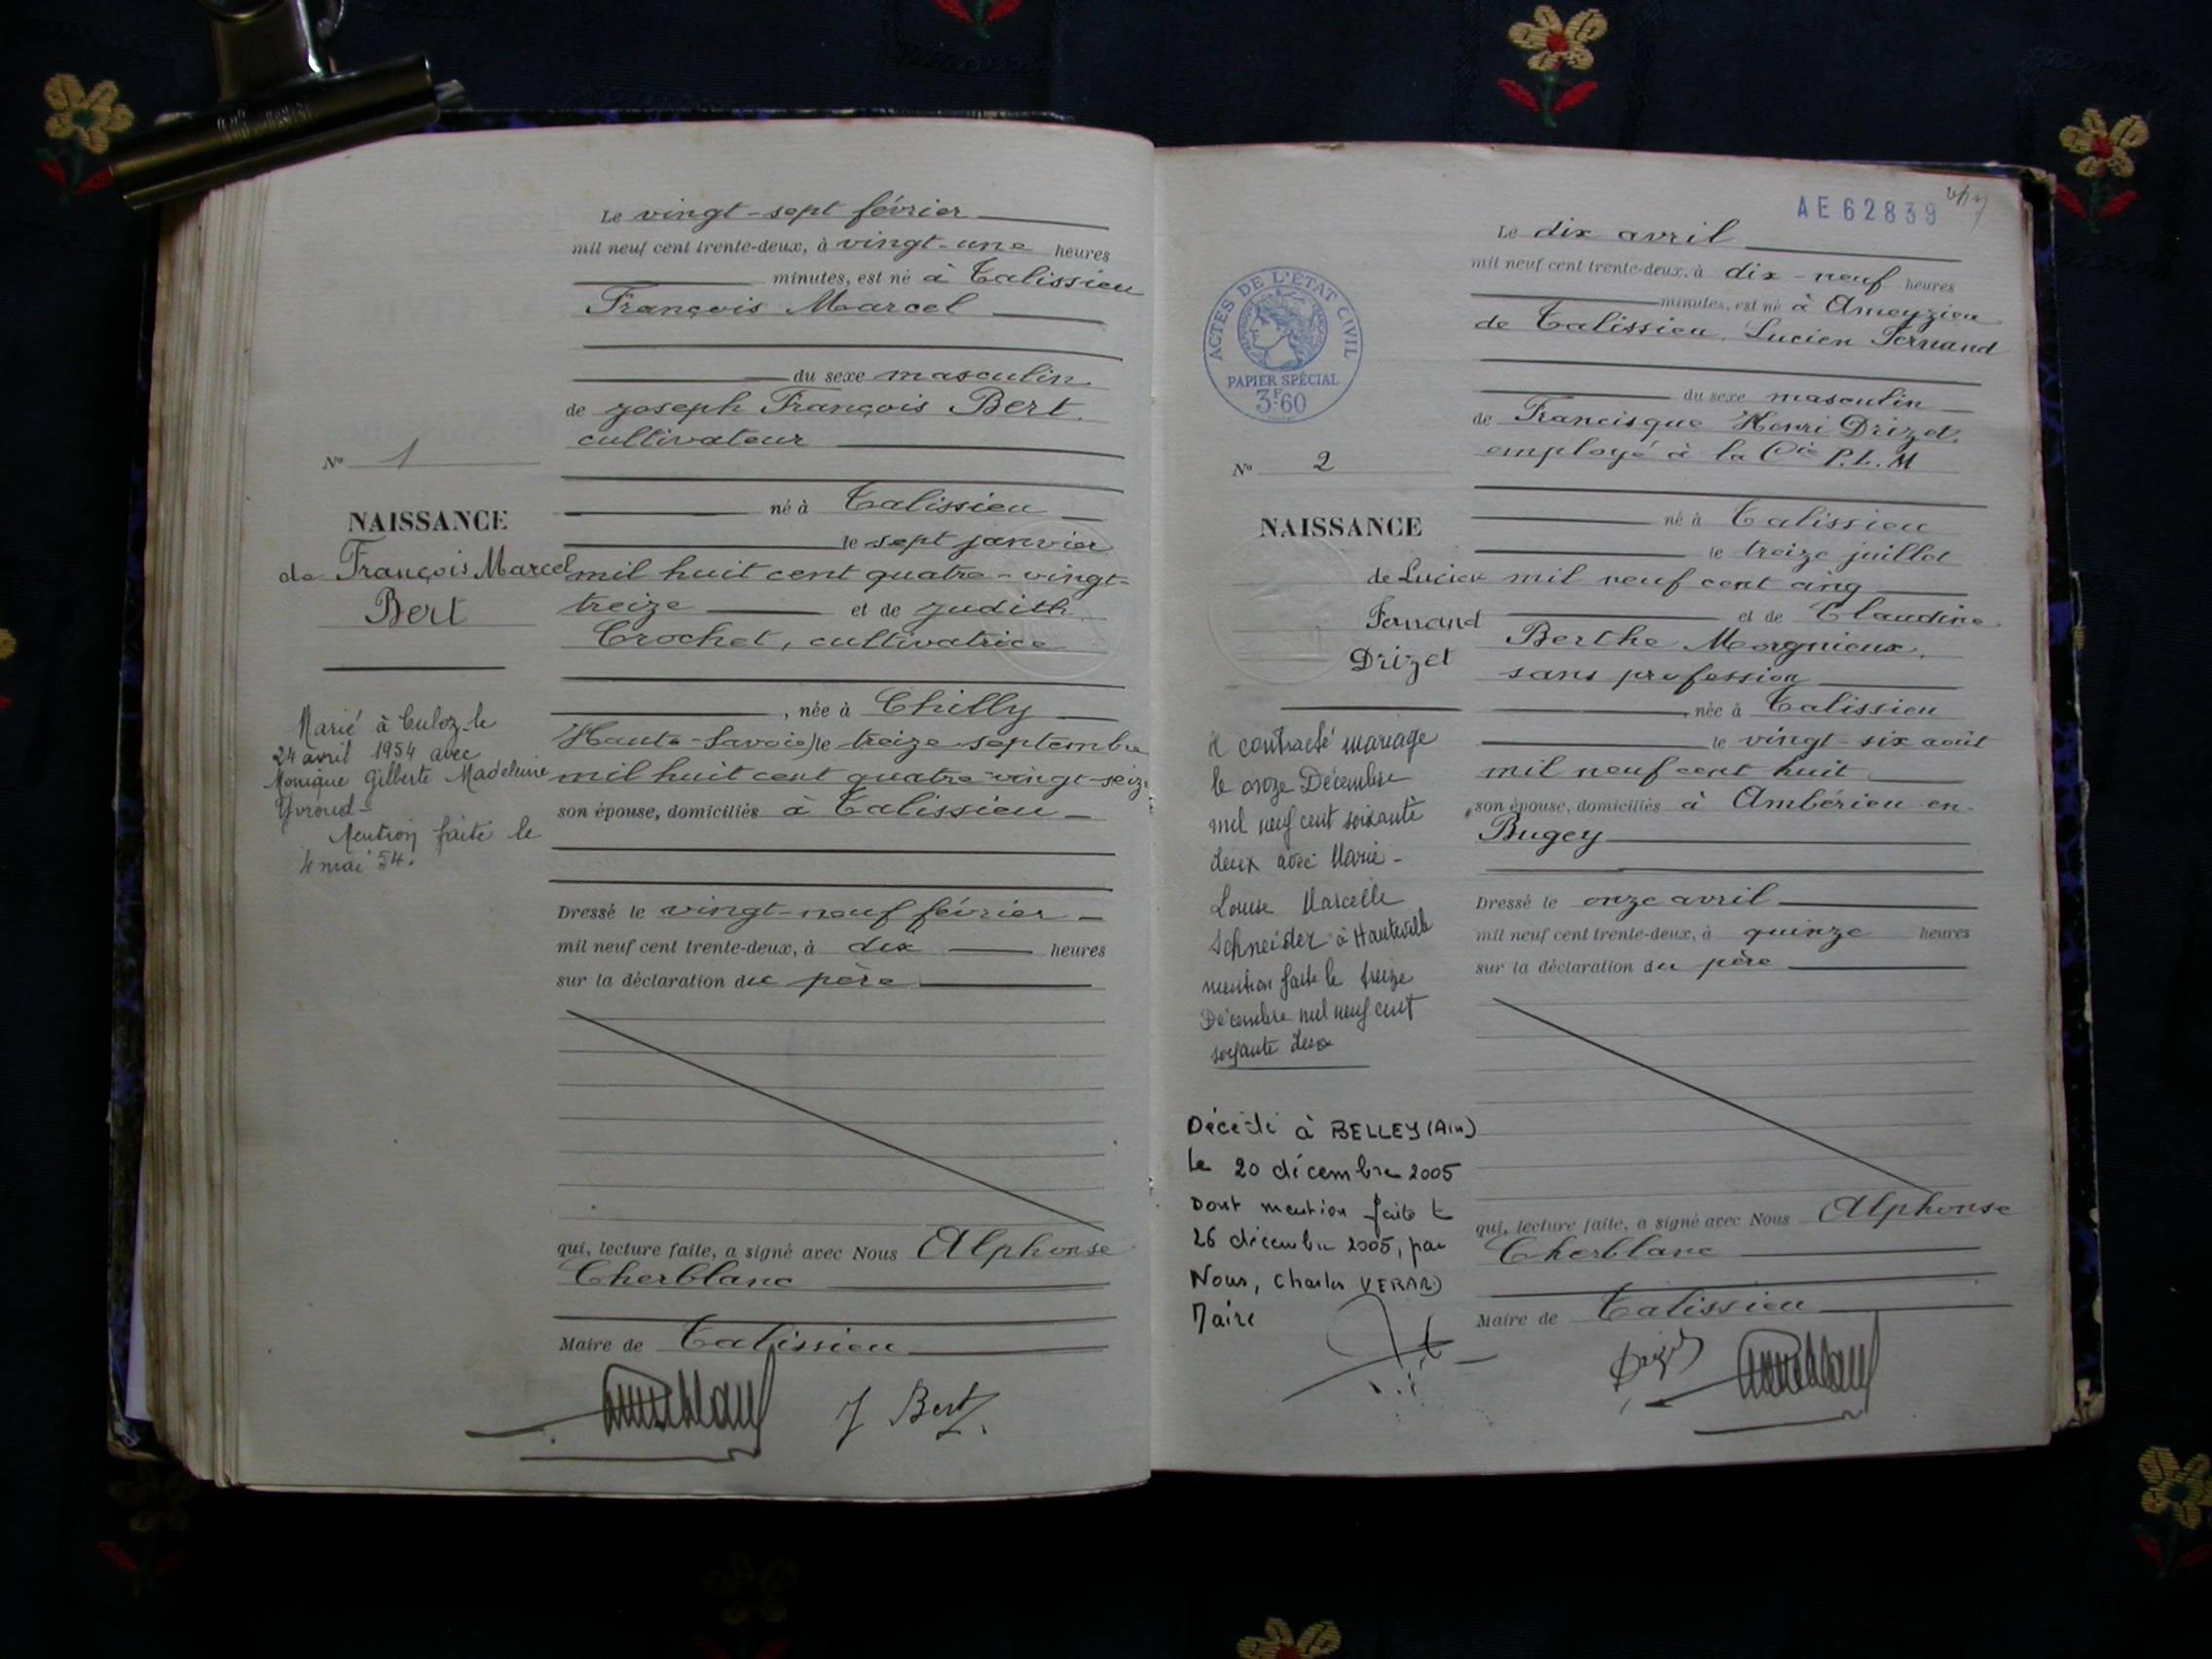 Le vingt-sept février
mil neuf cent trente-deux, à vingt-une heures
minutes, est né à Talissieu
François Marcel
du sexe masculin
de Joseph François Bert.
cultivateur
né à Talissieu
le sept janvier
mil huit cent quatre-vingt-
treize et de Judith
Crochet, cultivatrice
, née à Chilly
(Haute-Savoie) le treize septembre
mil huit cent quatre vingt-seize
son épouse, domiciliés à Talissieu
Dressé le vingt-neuf février
mil neuf cent trente-deux, à dix heures
sur la déclaration du père
qui, lecture faite, a signé avec Nous Alphonse
Cherblanc
Maire de Talissieu
J Bert
No 1
NAISSANCE
de François Marcel
Bert
Marié à Culoz le
24 avril 1954 avec
Monique Gilberte Madeleine
Yvroud-
Mention faite le
4 mai 54.
AE62839
Le dix avril
mil neuf cent trente-deux, à dix-neuf heures
minutes, est né à Ameyzieu
de Talissieu, Lucien Fernand
du sexe masculin
de Francisque Henri Drizet,
employé à la Cie P.L.M
né à Talissieu
le treize juillet
mil neuf cent cinq
et de Claudine
Berthe Morgnieux,
sans profession
, née à Talissieu
le vingt-six août
mil neuf cent huit
son épouse, domiciliés à Ambérieu-en-
Bugey
Dressé le onze avril
mil neuf cent trente-deux, à quinze heures
sur la déclaration du père
qui, lecture faite, a signé avec Nous Alphonse
Cherblanc
Maire de Talissieu
Drizet
ACTES DE L'ÉTAT CIVIL
PAPIER SPÉCIAL
3F.60
No 2
NAISSANCE
de Lucien
Fernand
Drizet
contracté mariage
le onze Décembre
mil neuf cent soixante
deux avec Marie-
Louise Marcelle
Schneider à Hauteville
mention faite le treize
Décembre mil neuf cent
soixante deux
Décédé à BELLEY (Ain)
le 20 décembre 2005
Dont mention faite le
26 décembre 2005, par
Nous, Charles VERARD
Maire